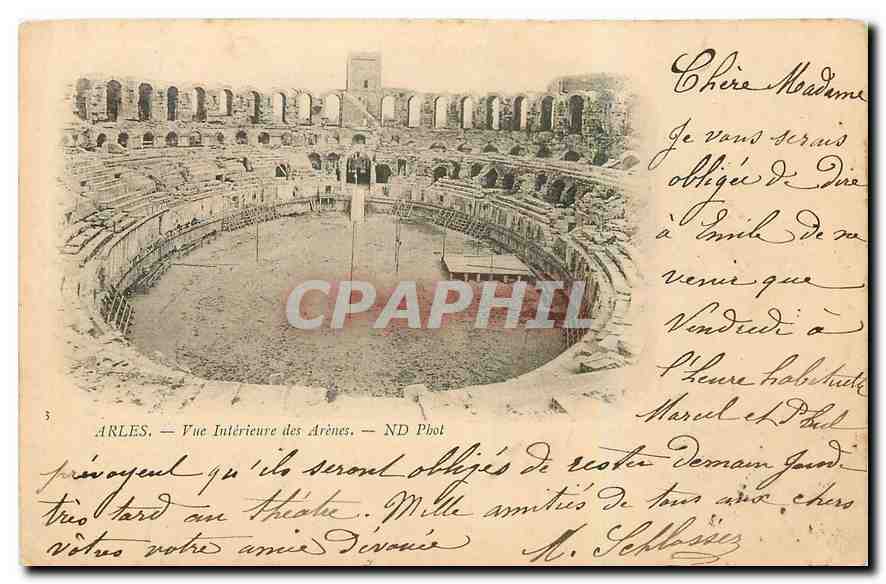 Chère Madame
Je vous serais
obligée de dire
à Emile de ne
venir que
Vendredi à
l'heure habituelle
Marcel et Paul
prévoyent qu'ils seront obligés de rester demain Jeudi
très tard au théatre. Mille amitiés de tous aux chers
vôtres votre amie dévouée
M. Schlosser
CPAPHIL
3
ARLES. — Vue Intérieure des Arènes. — ND Phot